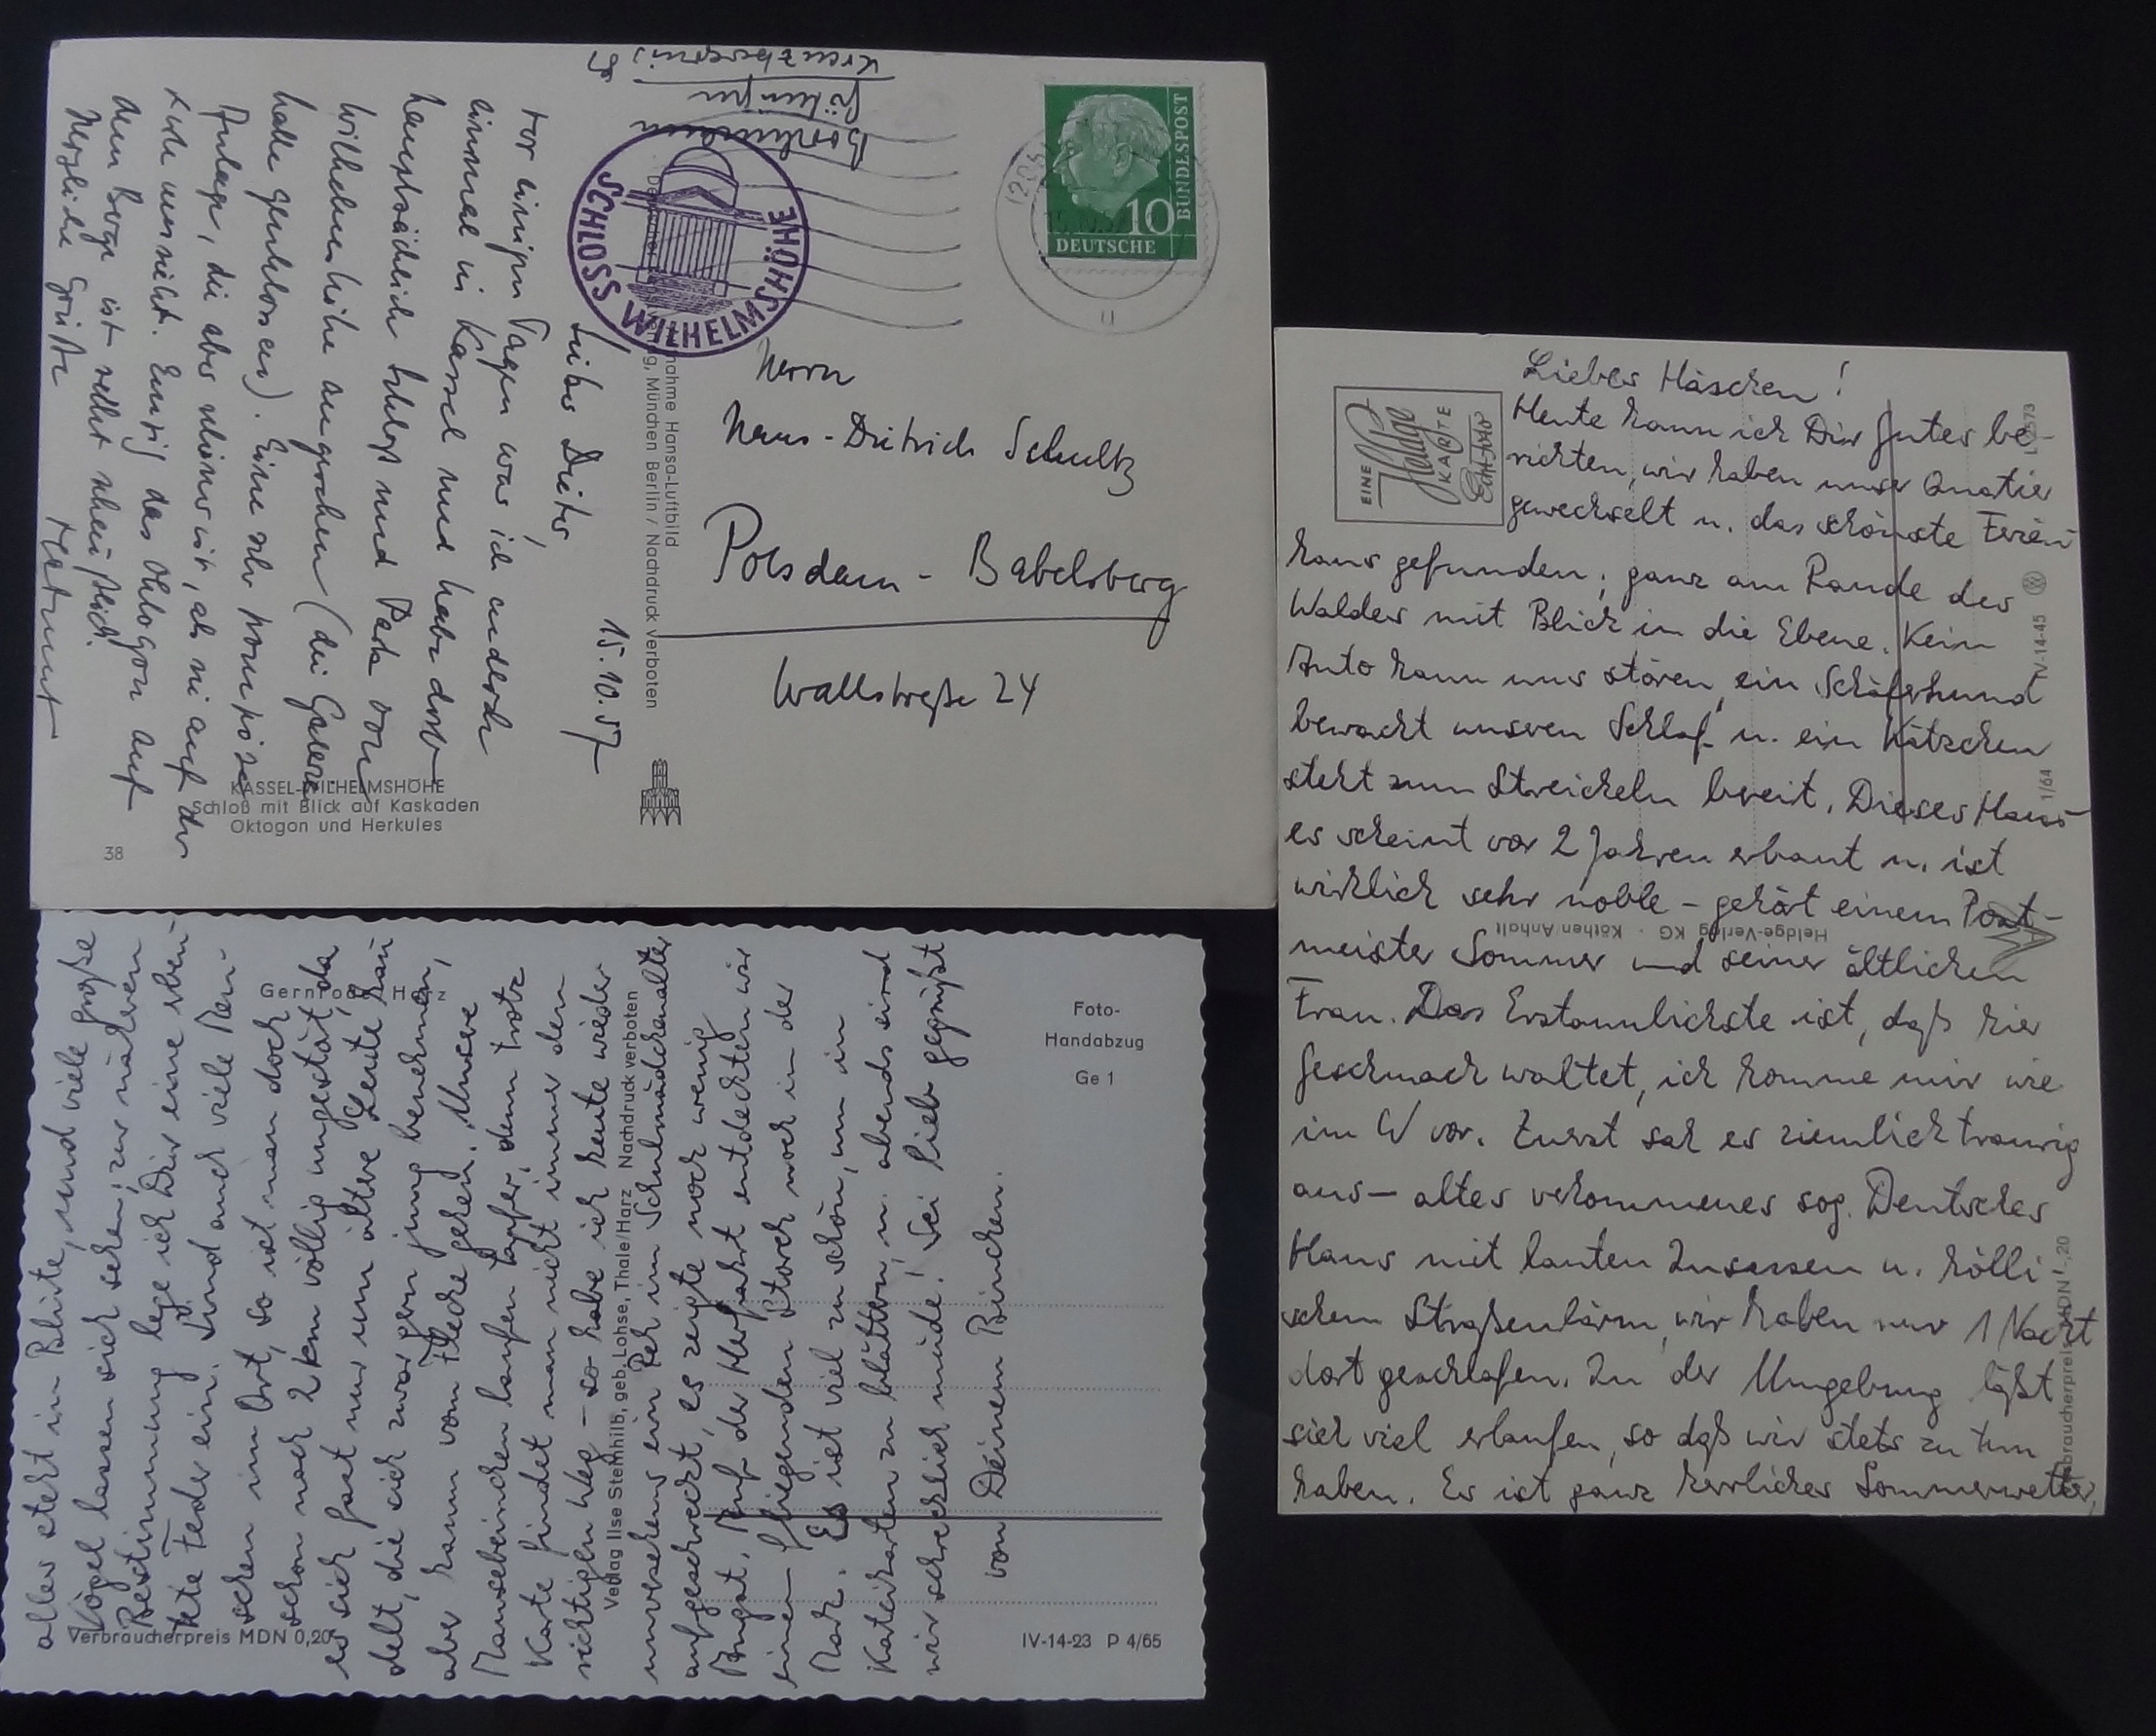 Kreuzbergstr.
SCHLOSS WILHELMSHÖHE
10
DEUTSCHE
BUNDESPOST
Herrn
Hans-Dietrich Schultz
Potsdam - Babelsberg
Wallstraße 24
15.10.57
Lieber Dieter,
vor einigen Tagen war ich
einmal in Kassel und habe dort
hauptsächlich Schloß und Park von
Wilhelmshöhe angesehen (die Galerie
hatte geschlossen). Eine sehr pompöse
Anlage, die aber schöner ist, als sie auf der
Karte aussieht. Einzig das Oktogon auf
dem Berge ist recht scheußlich.
Herzliche Grüße
Helmut
nahme Hansa-Luftbild
München Berlin / Nachdruck verboten
KASSEL-WILHELMSHÖHE
Schloß mit Blick auf Kaskaden
Oktogon und Herkules
38
Liebes Häschen!
Heute kann ich Dir Gutes be-
richten, wir haben unser Quatier
gewechselt u. das schönste Ferien-
haus gefunden; ganz am Rande des
Waldes mit Blick in die Ebene. Kein
Auto kann uns stören, ein Schäferhund
bewacht unseren Schlaf u. ein Kätzchen
steht zum Streicheln bereit. Dieses Haus
es scheint vor 2 Jahren erbaut u. ist
wirklich sehr noble - gehört einem Post-
meister Sommer und seiner ältlichen
Frau. Das Erstaunlichste ist, daß hier
Geschmack waltet, ich komme mir wie
im W vor. Zuerst sah es ziemlich traurig
aus - altes verkommenes sog. Deutsches
Haus mit lauten Insassen u. hölli-
schem Straßenlärm, wir haben nur 1 Nacht
dort geschlafen. In der Umgebung läßt
sich viel erlaufen, so daß wir stets zu tun
haben. Es ist ganz herrliches Sommerwetter,
EINE
Heldge
KARTE
Echt Foto
IV-14-45
1/64
Heldge-Verlag KG · Köthen/Anhalt
Verbraucherpreis MDN -,20
alles steht in Blüte, und viele große
Vögel lassen sich sehen; zur näheren
Bestimmung lege ich Dir eine eben
Feder ein. Sind auch viele Men-
schen im Ort, so ist man doch
schon nach 2 km völlig ungestört, da
es sich fast nur um ältere Leute han-
delt, die sich zwar gern jung benehmen,
aber kaum vom Flecke gehen. Unsere
Mausebeinchen laufen tapfer, denn trotz
Karte findet man nicht immer den
richtigen Weg - so habe ich heute wieder
unversehens ein Reh im Schulmädchenalter
aufgeschreckt, es zeigte noch wenig
Angst. Auf der Herfahrt entdeckten wir
einen fliegenden Storch noch in der
Mark. Es ist viel zu schön, um in
Kateikarten zu blättern, u. abends sind
wir schrecklich müde! Sei lieb gegrüßt
von Deinem Binchen.
Gernrode Harz
Verlag Ilse Stemhilb, geb. Lohse, Thale/Harz Nachdruck verboten
Foto-
Handabzug
Ge 1
Verbraucherpreis MDN 0,20
IV-14-23 P 4/65